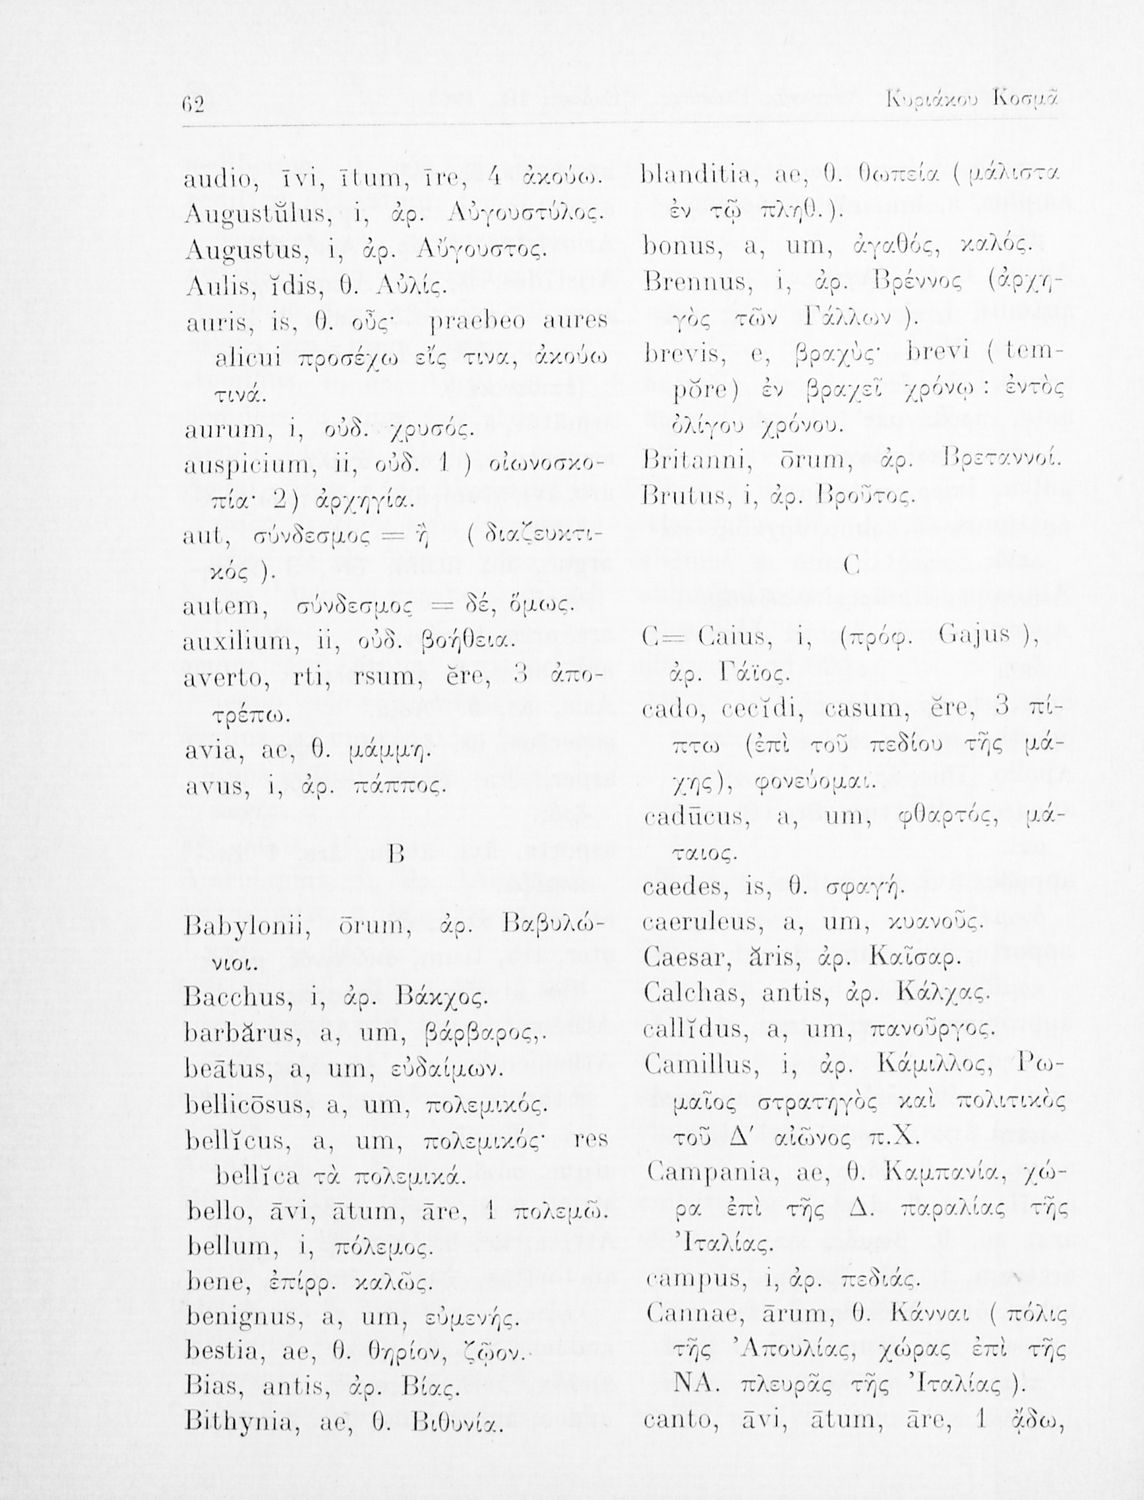 62
Κυριάκου Κοσμᾶ
audio, īvi, ītum, īre, 4 ἀκούω.
Augustŭlus, i, ἀρ. Αὐγουστύλος.
Augustus, i, ἀρ. Αὔγουστος.
Aulis, ĭdis, θ. Αὐλίς.
auris, is, θ. οὖς· praebeo aures
alicui προσέχω εἴς τινα, ἀκούω
τινά.
aurum, i, οὐδ. χρυσός.
auspicium, ii, οὐδ. 1 ) οἰωνοσκο-
πία· 2) ἀρχηγία.
aut, σύνδεσμος = ἢ ( διαζευκτι-
κός ).
autem, σύνδεσμος = δέ, ὅμως.
auxilium, ii, οὐδ. βοήθεια.
averto, rti, rsum, ĕre, 3 ἀπο-
τρέπω.
avia, ae, θ. μάμμη.
avus, i, ἀρ. πάππος.
B
Babylonii, ōrum, ἀρ. Βαβυλώ-
νιοι.
Bacchus, i, ἀρ. Βάκχος.
barbărus, a, um, βάρβαρος,.
beātus, a, um, εὐδαίμων.
bellicōsus, a, um, πολεμικός.
bellĭcus, a, um, πολεμικός· res
bellĭca τὰ πολεμικά.
bello, āvi, ātum, āre, 1 πολεμῶ.
bellum, i, πόλεμος.
bene, ἐπίρρ. καλῶς.
benignus, a, um, εὐμενής.
bestia, ae, θ. θηρίον, ζῷον.
Bias, antis, ἀρ. Βίας.
Bithynia, ae, θ. Βιθυνία.
blanditia, ae, θ. θωπεία ( μάλιστα
ἐν τῷ πληθ. ).
bonus, a, um, ἀγαθός, καλός.
Brennus, i, ἀρ. Βρέννος (ἀρχη-
γὸς τῶν Γάλλων ).
brevis, e, βραχὺς· brevi ( tem-
pŏre) ἐν βραχεῖ χρόνῳ : ἐντὸς
ὀλίγου χρόνου.
Britanni, ōrum, ἀρ. Βρεταννοί.
Brutus, i, ἀρ. Βροῦτος.
C
C= Caius, i, (πρόφ. Gajus ),
ἀρ. Γάϊος.
cado, cecĭdi, casum, ĕre, 3 πί-
πτω (ἐπὶ τοῦ πεδίου τῆς μά-
χης), φονεύομαι.
cadūcus, a, um, φθαρτός, μά-
ταιος.
caedes, is, θ. σφαγή.
caeruleus, a, um, κυανοῦς.
Caesar, ăris, ἀρ. Καῖσαρ.
Calchas, antis, ἀρ. Κάλχας.
callĭdus, a, um, πανοῦργος.
Camillus, i, ἀρ. Κάμιλλος, Ρω-
μαῖος στρατηγὸς καὶ πολιτικὸς
τοῦ Δ′ αἰῶνος π.Χ.
Campania, ae, θ. Καμπανία, χώ-
ρα ἐπὶ τῆς Δ. παραλίας τῆς
Ἰταλίας.
campus, i, ἀρ. πεδιάς.
Cannae, ārum, θ. Κάνναι ( πόλις
τῆς Ἀπουλίας, χώρας ἐπὶ τῆς
ΝΑ. πλευρᾶς τῆς Ἰταλίας ).
canto, āvi, ātum, āre, 1 ᾄδω,